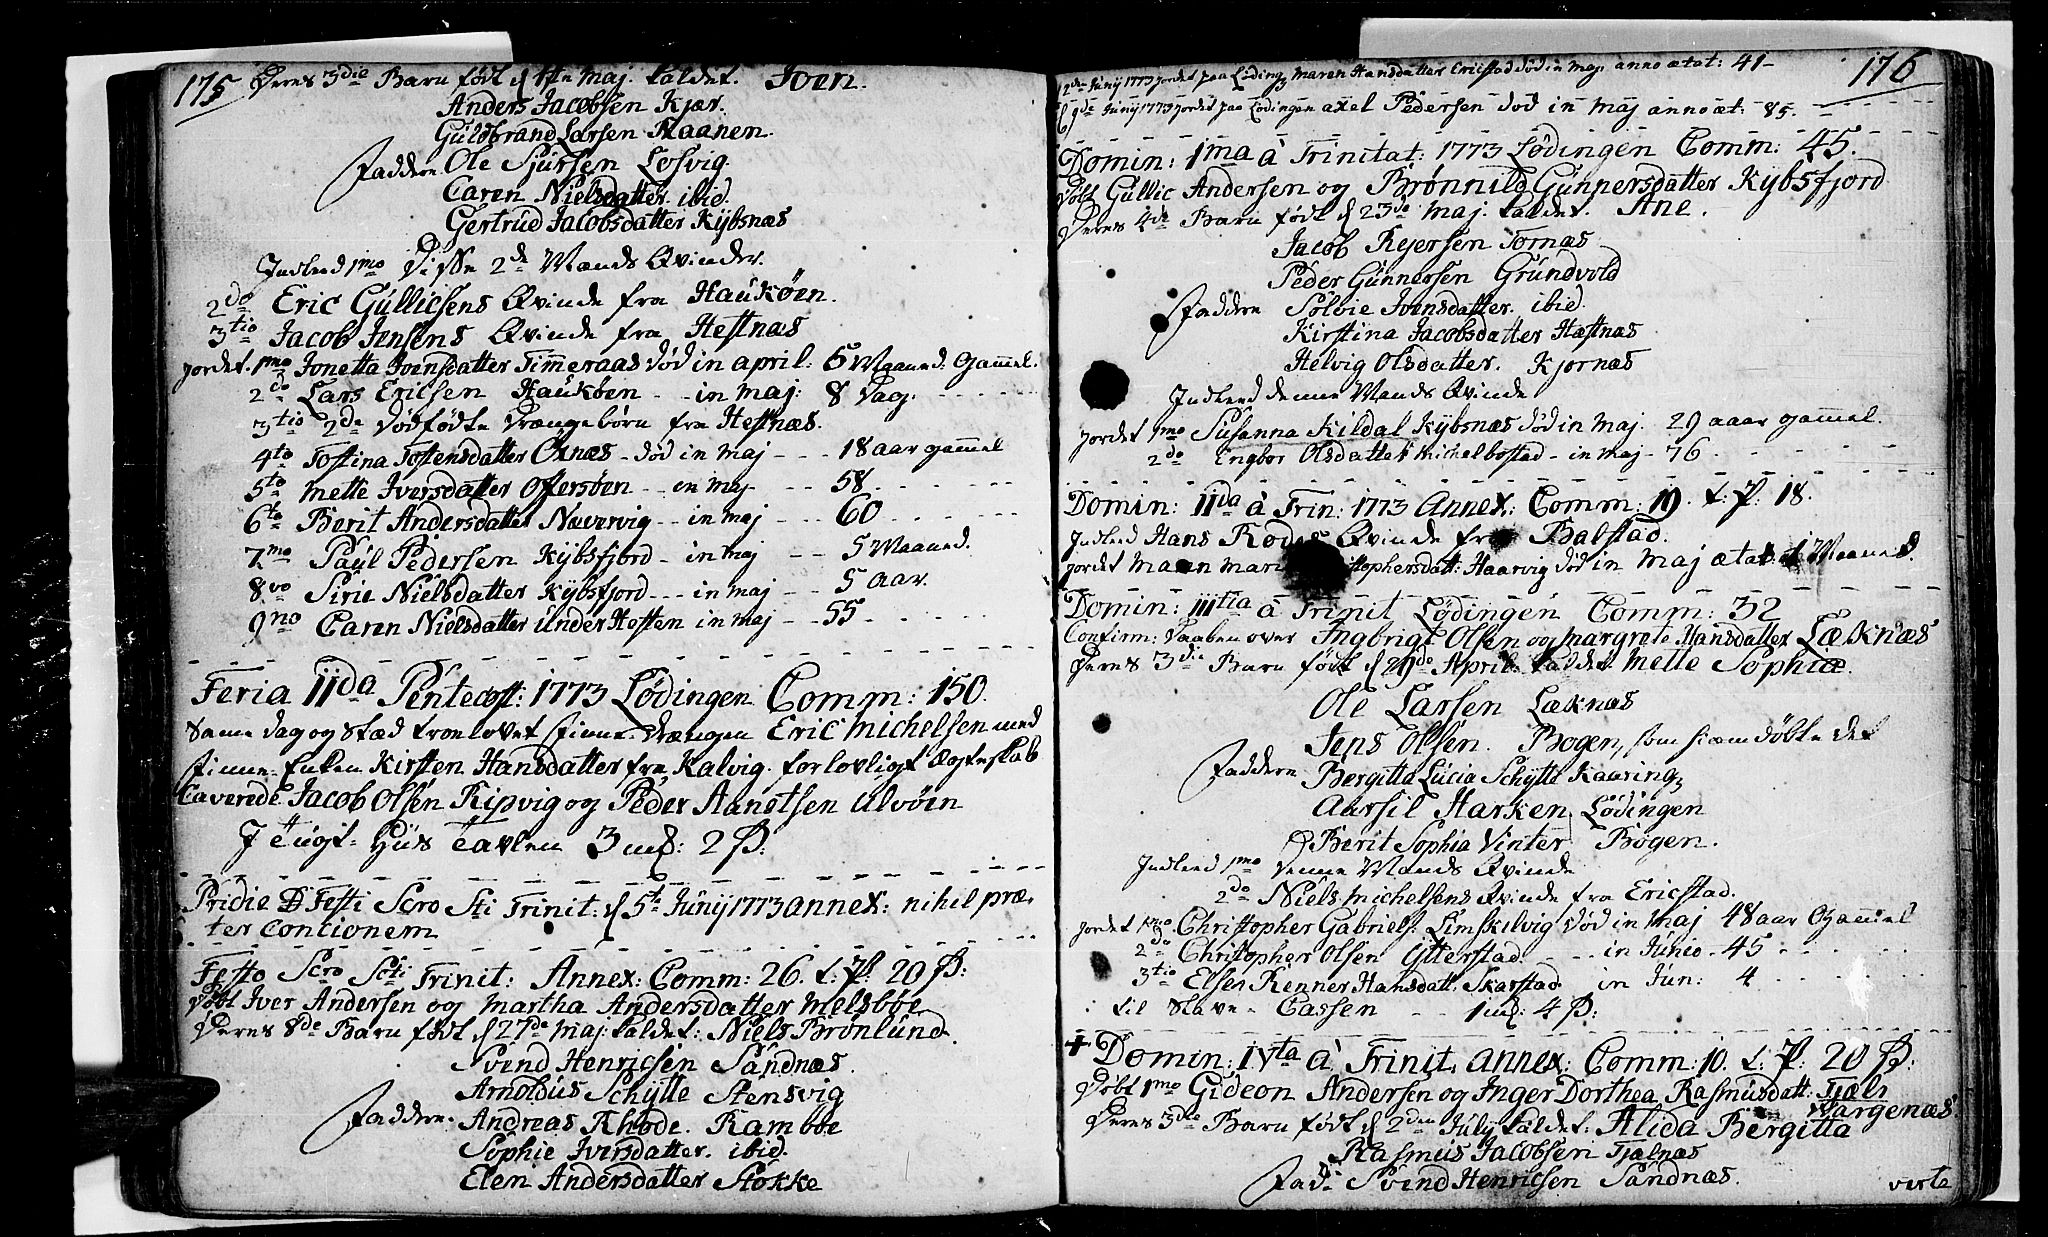 175
Deres 3die Barn født d 4te Maj. kaldet. Joen.
Anders Jacobsen Kjær.
Guldbrand Larsen Raanen.
Faddere Ole Sjursen Losvig.
Caren Nielsdatter ibid.
Gertrud Jacobsdatter Kybsnæs
Indleed 1mo Disse 2de Mands Qvinder.
2do Eric Gullicsens Qvinde fra Haukøen.
3tio Jacob Jensens Qvinde fra Hestnæs
jordet. 1mo Jonetta Joensdatter Timmeraas død in april: 5 Maaned: Gammel.
2do Lars Ericsen Haukøen - - in maj: 8 Dag.
3tio 2de dødfødte Drængebørn fra Hestnæs.
4to Tostina Tostensdatter Ørnæs - død in maj - - - 18 aar gammel
5to Mette Iversdatter Offersøen - - in maj - - - 58.
6to Berit Andersdatter Nævervig - - in maj - - - 60
7mo Paul Pedersen Kybsfjord - in maj - - 5 Maaned.
8vo Sirie Nielsdatter Kybsfjord - - - in maj - - 5 aar.
9no Caren Nielsdatter Under Hesten in maj - - 55
Feria IIda Pentecost: 1773 Lødingen Comm: 150.
Samme dag og stæd trolovet Finne-Drængen Eric Michelsen med
Finne-Enken Kirsten Hansdatter fra Kalvig. for lovligt Ægteskab
Caverede Jacob Olsen Ripvig og Peder Aanotsen Ulvøen
J Tugt-Huus Tavlen 3 mk: 2 ß:
Pridie D Festi Scro Sti Trinit: d 5te Junij 1773 annex: nihil præ-
ter Contionem
Festo Scro Scti Trinit: Annex: Comm: 26. L: P. 20 ß:
Døbt Iver Andersen og Martha Andersdatter Melsbøe
Deres 8de Barn født d 27de maj: kaldet: Niels Brønlund.
Svend Henricsen Sandnæs.
Arnoldus Schytte Stensvig
Faddere. Andreas Rhode. Ramboe
Sophie Iversdatter. ibid.
Elen Andersdatter Stokke
176
12de Junij 1773 jordet paa Lødingen Maren Hansdatter Ericstad død in maj. anno ætat: 41 -
d 9de Junij 1773 jordet paa Lødingen axel Pedersen død in maj anno æt: 85.
Domin: 1ma à Trinitat: 1773 Lødingen Comm: 45.
Døbt Gullic Andersen og Brønnild Gunnersdatter Kybsfjord
Deres 4de Barn født d 23de maj. kaldet. Ane.
Jacob Rejersen Tornæs
Peder Gunnersen Grundvold
Faddere Sølvie Joensdatter. ibid.
Kirstina Jacobsdatter Hæstnæs
Helvig Olsdatter. Kjornæs
Indleed denne Mands Qvinde
jordet 1mo Susanna Kildal Kybsnæs død in maj. 29 aaar gammel.
2do Engbor Olsdatter Michelbostad - in maj - 76
Domin: IIda à Trin: 1773 Annex: Comm: 19. L: P: 18.
Indleed Hans Rodes Qvinde fra Balstad.
jordet Maren Mari tophersdatt: Haarvig død in maj ætat: Maaned.
Domin: IIItia à Trinit Lødingen Comm: 32
Confirm: Daaben over Ingbrigt Olsen og Margrete Hansdatter Læknæs
Deres 3die Barn født d 29de April kaldet. Mette Sophiæ.
Ole Larsen Læknæs
Jens Olsen. Bogen, som hiemdøbte det
Faddere Bergitta Lucia Schytte Kauring
Aarsil Harken Lødingen
Berit Sophia Vinter Bogen.
Indleed 1mo denne Mands Qvinde
2do Niels Michelsens Qvinde fra Ericstad.
jordet 1mo Christopher Gabriels: Limskilvig død in maj 48 aar Gammel
2do Christopher Olsen Ytterstad - - - in Junio - 45
3tio Elsen Renner Hansdatt. Skarstad in Jun: 4
til Slave-Cassen - - 1 mk: 4 ß:
+ Domin: IVta à Trinit. Annex: Comm: 10. L: P: 20 ß:
Døbt 1mo Gideon Andersen og Inger Dorthea Rasmusdatt: Fjæls
Vargenæs
Deres 3die Barn født d 2den July kaldet: Alida Bergitta
Rasmus Jacobsen Tjælnæs
Fad: Svend Henricsen Sandnæs.
verte